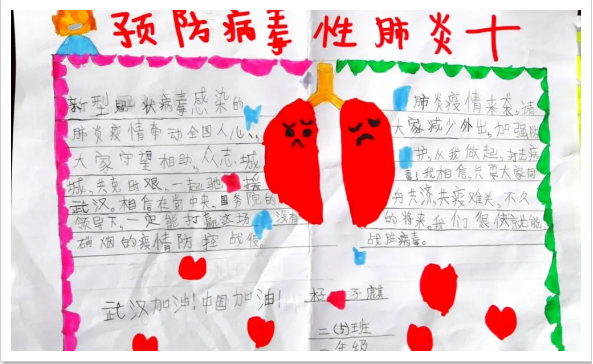 预防病毒性肺炎
新型冠状病毒感染的
肺炎疫情牵动全国人心,
大家守望相助,众志 城
城,共克时艰、一起驰 援
武汉,相信在党中央、国务院的
领导下,一定能打赢这场 没有
硝烟的疫情防控 战役
肺炎疫情来袭,请
大家减少外出,加强防
护,从我做起,打击病
毒!我相信,只要大家同
舟共济,共度难关,不久
的将来,我们很快就能
战胜病毒。
武汉加油!中国加油!
杨 子麒
二(5)班
二年级